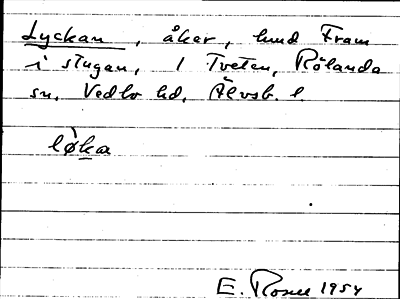 Lyckan, åker, hmd Fram
i stugan, 1 Tveten, Rölanda
sn. Vedbo hd, Älvsb. l.
lø̀ka
E. Rosell 1954